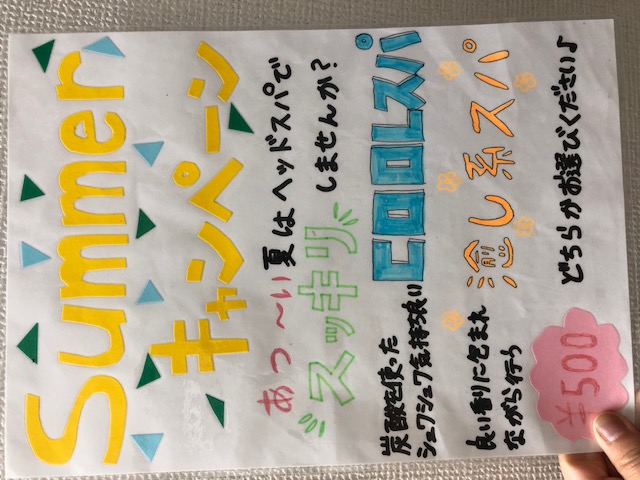 Summer
キャンペーン
あつ〜い夏はヘッドスパで
スッキリしませんか?
炭酸を使った
シュワシュワ気持ち良い
COOLスパ
良い香りに包まれ
ながら行う
癒し系スパ
¥500
どちらかお選びください♪